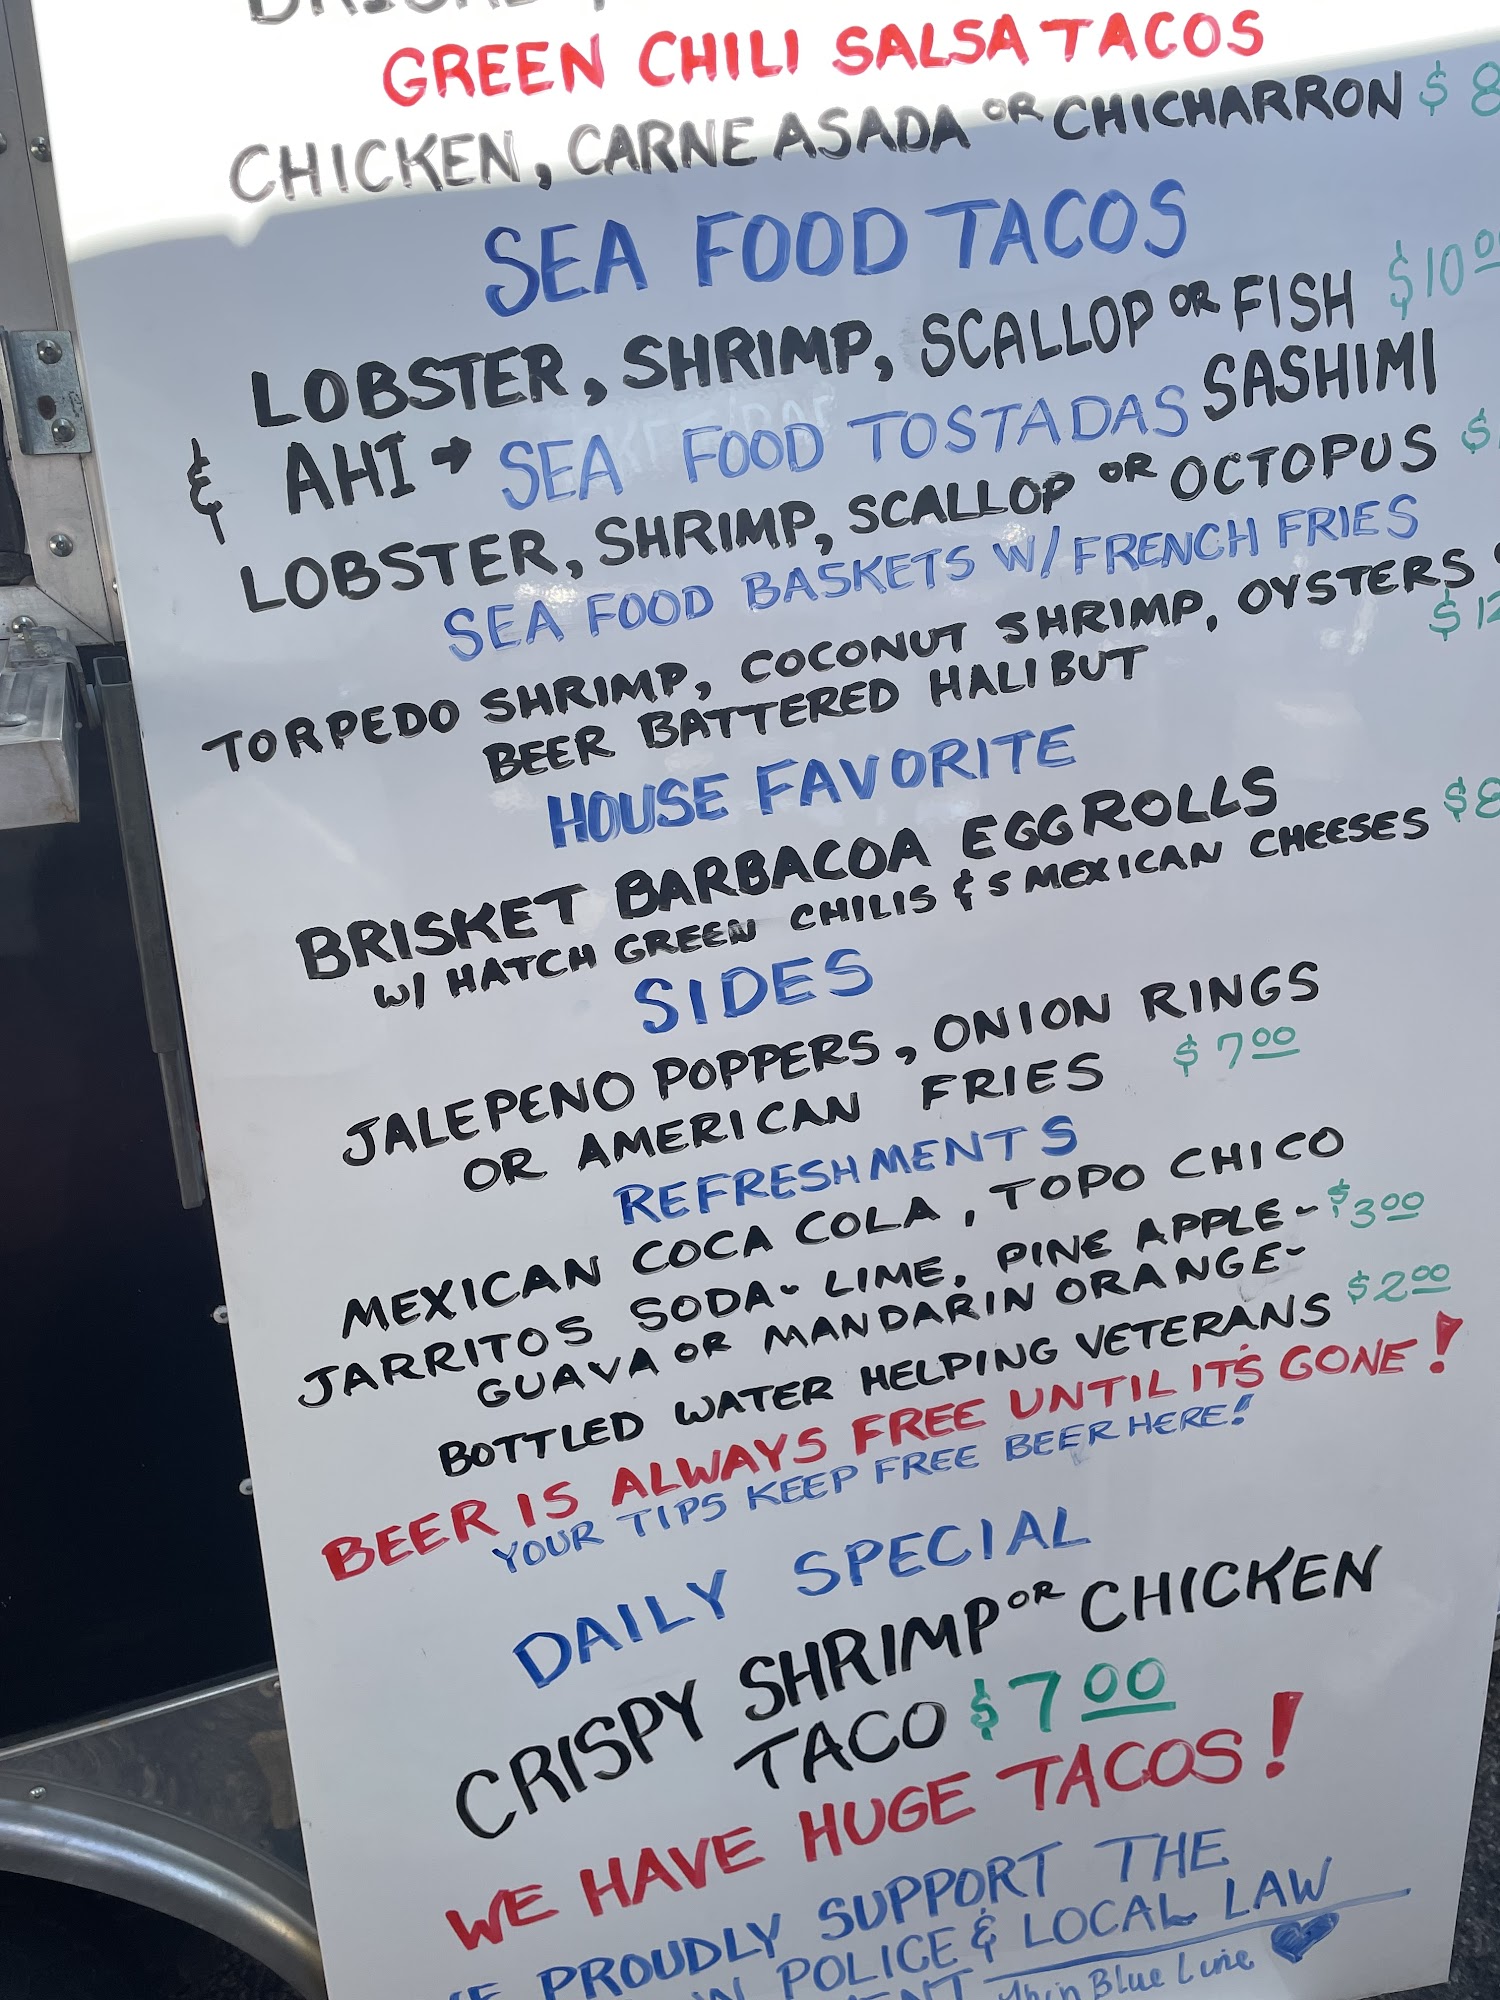 GREEN CHILI SALSA TACOS
CHICKEN, CARNE ASADA OR CHICHARRON $ 8
SEA FOOD TACOS
LOBSTER, SHRIMP, SCALLOP OR FISH $10 00
& AHI → SEA FOOD TOSTADAS SASHIMI
LOBSTER, SHRIMP, SCALLOP OR OCTOPUS $
SEA FOOD BASKETS W/ FRENCH FRIES
TORPEDO SHRIMP, COCONUT SHRIMP, OYSTERS
BEER BATTERED HALIBUT $12
HOUSE FAVORITE
BRISKET BARBACOA EGGROLLS
W/ HATCH GREEN CHILIS & 5 MEXICAN CHEESES $8
SIDES
JALEPENO POPPERS, ONION RINGS
OR AMERICAN FRIES $7 00
REFRESHMENTS
MEXICAN COCA COLA, TOPO CHICO
JARRITOS SODA - LIME, PINE APPLE - $3 00
GUAVA OR MANDARIN ORANGE -
BOTTLED WATER HELPING VETERANS $2 00
BEER IS ALWAYS FREE UNTIL IT'S GONE!
YOUR TIPS KEEP FREE BEER HERE!
DAILY SPECIAL
CRISPY SHRIMP OR CHICKEN
TACO $7 00
WE HAVE HUGE TACOS!
PROUDLY SUPPORT THE
POLICE & LOCAL LAW
Thin Blue Line